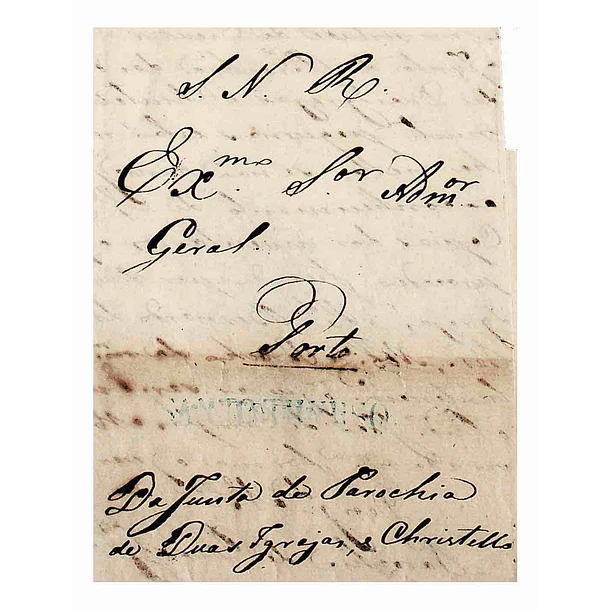 S. N. R.
Exmo. Sor Admor.
Geral.
Porto
Da Junta de Parochia
de Duas Igrejas, e Christello